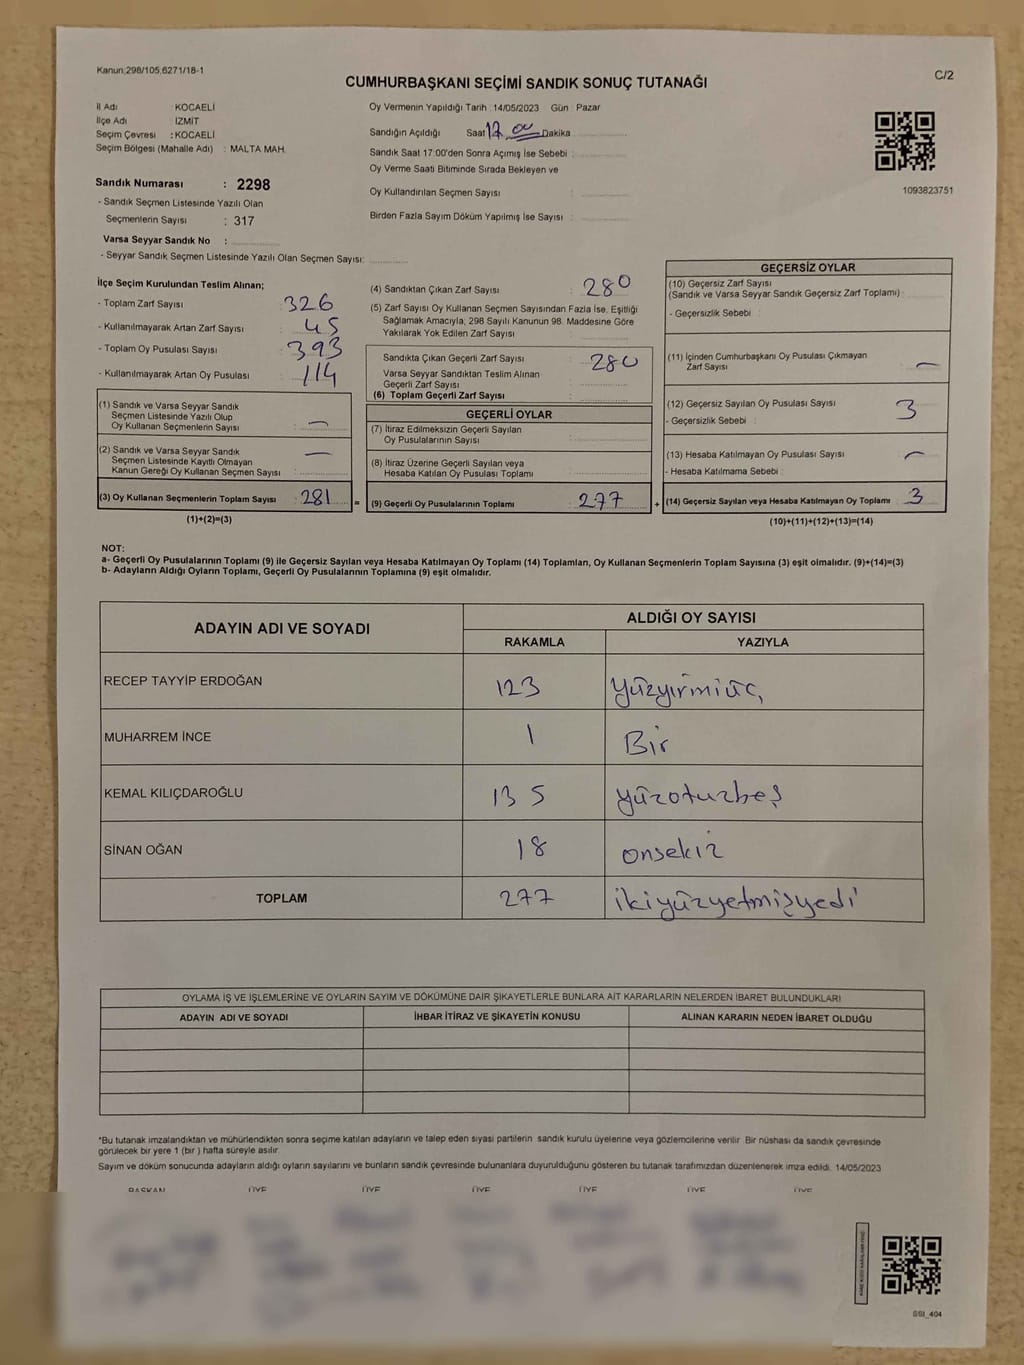 Kanun;298/105,6271/18-1
C/2
CUMHURBAŞKANI SEÇİMİ SANDIK SONUÇ TUTANAĞI
İl Adı : KOCAELİ
İlçe Adı : İZMİT
Seçim Çevresi : KOCAELİ
Seçim Bölgesi (Mahalle Adı) : MALTA MAH.
Oy Vermenin Yapıldığı Tarih : 14/05/2023 Gün : Pazar
Sandığın Açıldığı Saat 17 00 Dakika
Sandık Saat 17:00'den Sonra Açımış İse Sebebi :
Oy Verme Saati Bitiminde Sırada Bekleyen ve
Oy Kullandırılan Seçmen Sayısı :
Birden Fazla Sayım Döküm Yapılmış İse Sayısı :
1093823751
Sandık Numarası : 2298
- Sandık Seçmen Listesinde Yazılı Olan
Seçmenlerin Sayısı : 317
Varsa Seyyar Sandık No :
- Seyyar Sandık Seçmen Listesinde Yazılı Olan Seçmen Sayısı:
İlçe Seçim Kurulundan Teslim Alınan;
- Toplam Zarf Sayısı : 326
- Kullanılmayarak Artan Zarf Sayısı : 45
- Toplam Oy Pusulası Sayısı : 393
- Kullanılmayarak Artan Oy Pusulası : 114
(1) Sandık ve Varsa Seyyar Sandık
Seçmen Listesinde Yazılı Olup
Oy Kullanan Seçmenlerin Sayısı : —
(2) Sandık ve Varsa Seyyar Sandık
Seçmen Listesinde Kayıtlı Olmayan
Kanun Gereği Oy Kullanan Seçmen Sayısı : —
(3) Oy Kullanan Seçmenlerin Toplam Sayısı : 281 =
(1)+(2)=(3)
(4) Sandıktan Çıkan Zarf Sayısı : 280
(5) Zarf Sayısı Oy Kullanan Seçmen Sayısından Fazla İse, Eşitliği
Sağlamak Amacıyla, 298 Sayılı Kanunun 98. Maddesine Göre
Yakılarak Yok Edilen Zarf Sayısı :
Sandıkta Çıkan Geçerli Zarf Sayısı : 280
Varsa Seyyar Sandıktan Teslim Alınan
Geçerli Zarf Sayısı :
(6) Toplam Geçerli Zarf Sayısı :
GEÇERLİ OYLAR
(7) İtiraz Edilmeksizin Geçerli Sayılan
Oy Pusulalarının Sayısı :
(8) İtiraz Üzerine Geçerli Sayılan veya
Hesaba Katılan Oy Pusulası Toplamı :
(9) Geçerli Oy Pusulalarının Toplamı : 277 +
GEÇERSİZ OYLAR
(10) Geçersiz Zarf Sayısı
(Sandık ve Varsa Seyyar Sandık Geçersiz Zarf Toplamı) :
- Geçersizlik Sebebi :
(11) İçinden Cumhurbaşkanı Oy Pusulası Çıkmayan
Zarf Sayısı : —
(12) Geçersiz Sayılan Oy Pusulası Sayısı : 3
- Geçersizlik Sebebi :
(13) Hesaba Katılmayan Oy Pusulası Sayısı : —
- Hesaba Katılmama Sebebi :
(14) Geçersiz Sayılan veya Hesaba Katılmayan Oy Toplamı : 3
(10)+(11)+(12)+(13)=(14)
NOT:
a- Geçerli Oy Pusulalarının Toplamı (9) ile Geçersiz Sayılan veya Hesaba Katılmayan Oy Toplamı (14) Toplamları, Oy Kullanan Seçmenlerin Toplam Sayısına (3) eşit olmalıdır. (9)+(14)=(3)
b- Adayların Aldığı Oyların Toplamı, Geçerli Oy Pusulalarının Toplamına (9) eşit olmalıdır.
ADAYIN ADI VE SOYADI
ALDIĞI OY SAYISI
RAKAMLA YAZIYLA
RECEP TAYYİP ERDOĞAN 123 yüzyirmiüç
MUHARREM İNCE 1 Bir
KEMAL KILIÇDAROĞLU 135 yüzotuzbeş
SİNAN OĞAN 18 onsekiz
TOPLAM 277 ikiyüzyetmişyedi
OYLAMA İŞ VE İŞLEMLERİNE VE OYLARIN SAYIM VE DÖKÜMÜNE DAİR ŞİKAYETLERLE BUNLARA AİT KARARLARIN NELERDEN İBARET BULUNDUKLARI
ADAYIN ADI VE SOYADI İHBAR İTİRAZ VE ŞİKAYETİN KONUSU ALINAN KARARIN NEDEN İBARET OLDUĞU
*Bu tutanak imzalandıktan ve mühürlendikten sonra seçime katılan adayların ve talep eden siyasi partilerin sandık kurulu üyelerine veya gözlemcilerine verilir. Bir nüshası da sandık çevresinde
görülecek bir yere 1 (bir ) hafta süreyle asılır.
Sayım ve döküm sonucunda adayların aldığı oyların sayılarını ve bunların sandık çevresinde bulunanlara duyurulduğunu gösteren bu tutanak tarafımızdan düzenlenerek imza edildi. 14/05/2023
BAŞKAN ÜYE ÜYE ÜYE ÜYE ÜYE ÜYE
SSI_404